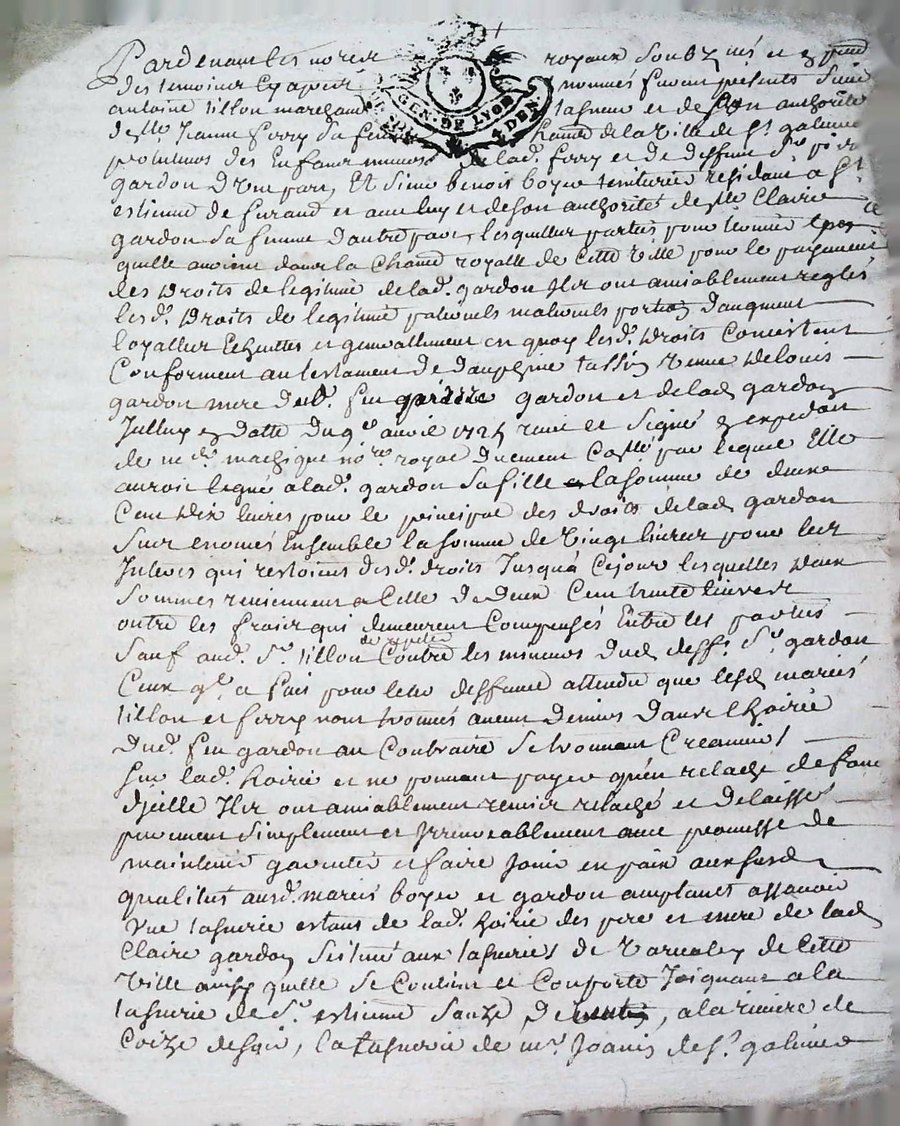 Pardevant les no.res royaux soubz.nés et en pnce
des temoins cy apres nommés furent presents Sieur
antoine tillon marchand taneur et de son authorité
d.lle Jeanne ferry sa femme de la ville de St galmier
GEN. DE LYON
4 DEN.
des Enfans mineurs de lad. ferry et de deffunt Sr
gardon d'Une part, Et Sieur benoit boyer teinturier residant a St
estienne de furand et avec luy et de son authorité d.lle Claire
gardon sa femme d'autre part, lesquelles parties pour
quelle avoient dans la Chatnie royalle de Cette Ville pour le payement
des Droits de legitime de lad. gardon Ilz ont amiablement reglés
lesd. Droits de legitime paternels maternels portion d'augment
loyallier Echuttes et generallement en quoy lesd. Droits Consistent
Conforment au testament de dauphine tassin Veuve de louis
gardon mere dud. feu gardon et de lad. gardon
Jullien en datte du 9e avril 172 receu et signé en expedition
de me no.re royal Duement Collé par lequel Elle
auroit legué a lad. gardon sa fille la somme de deux
Cent Dix livres pour le principal des droits de lad. gardon
Surenomée Ensemble la somme de Vingt livres pour les
Interets qui restoient desd. droits Jusqu'à Cejour lesquelles deux
Sommes reviennent a Celle De deux Cent trente livres
outre les fraix qui demeurent Compensés Entre les parties
de repeter
Sauf aud. Sr tillon Contre les mineurs dud. deff. Sr gardon
Ceux ql. a fait pour leur deffence attendu que lesd. mariés
tillon et ferry n'ont trouvés aucun deniers dans l'hoirie
dud. feu gardon au Contraire se trouvant Creanciers
sur lad. hoirie et ne pouvant payer qu'en relache de fonds
d'jcelle Ilz ont amiablement remis relaché et delaissé
purement simplement et Irrevocablement avec promesse de
maintenir garentir et faire Jouir en paix auxsusd.
qualités ausd. mariés boyer et gardon acceptants assavoir
Une tanerie estant de lad. hoirie des pere et mere de lad.
Claire gardon Scituée aux taneries de de Cette
Ville ainsy quelle se Contient et Comporte Joignant a la
tanerie de Sr estienne Sauze , a la riviere de
Coize de soir, la tannerie de mr Joanis de St galmier